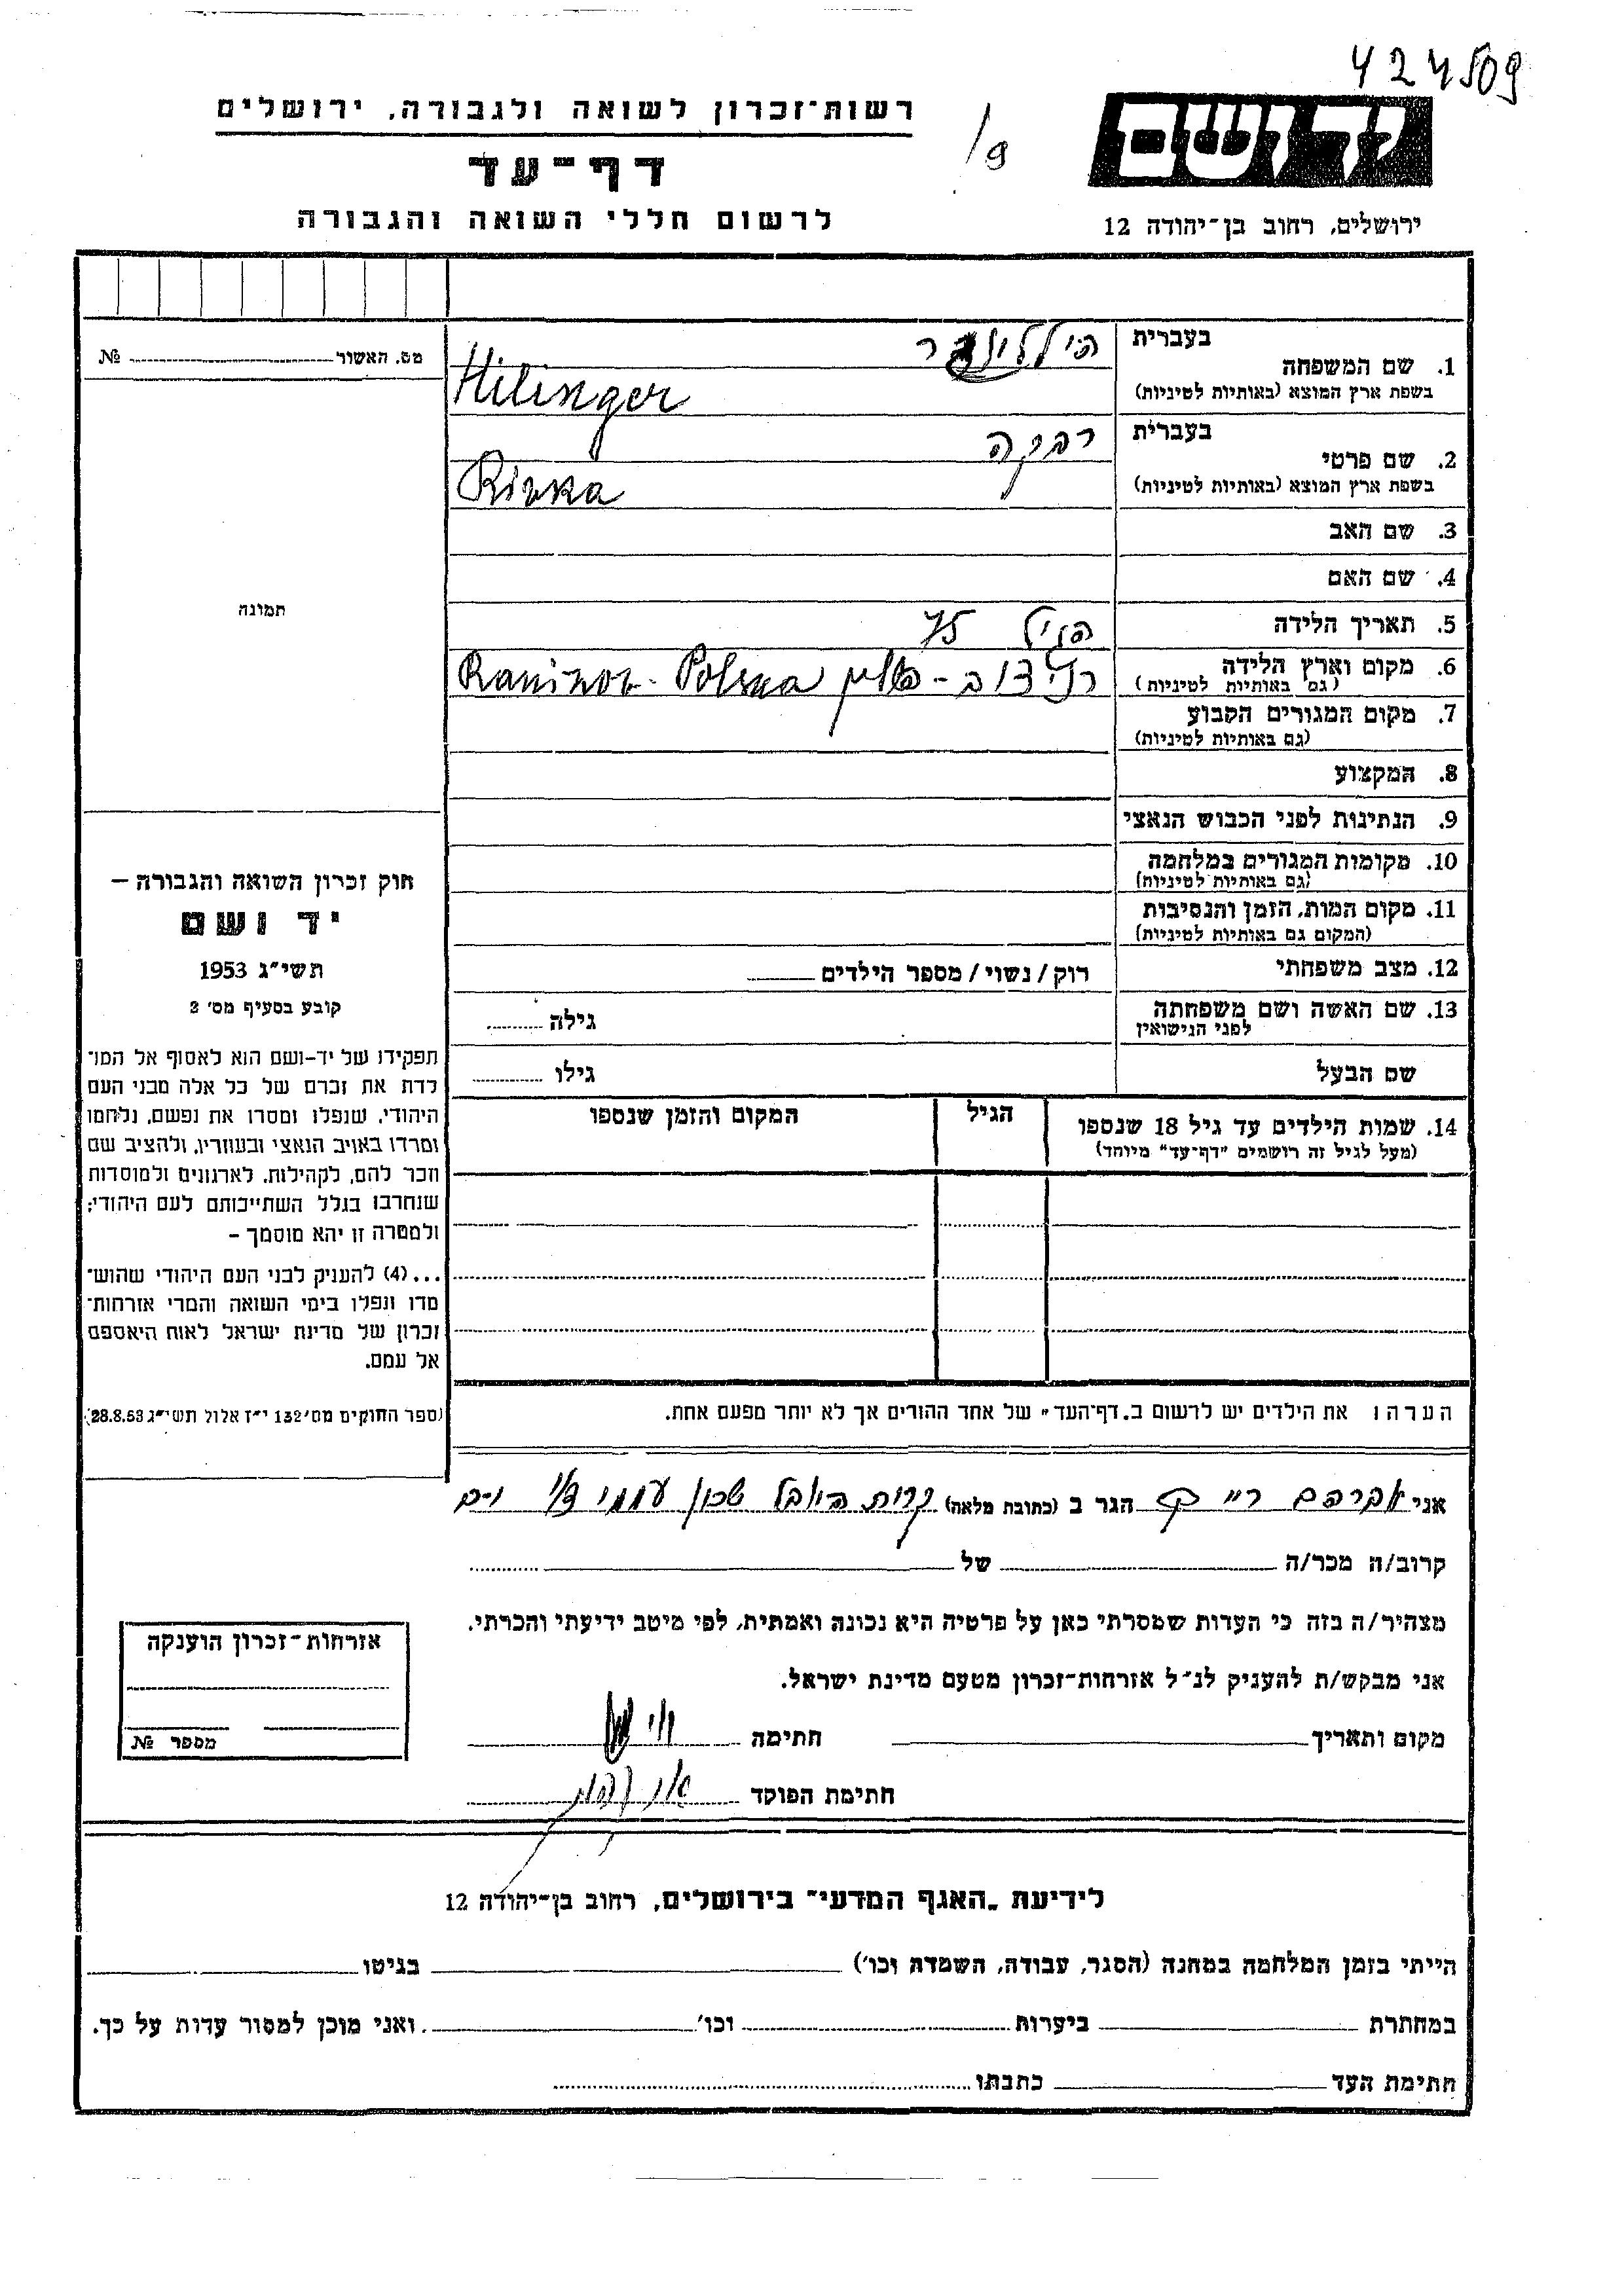 424509
יד ושם
ירושלים, רחוב בן־יהודה 12
רשות־זכרון לשואה ולגבורה, ירושלים
דף־עד
לרשום חללי השואה והגבורה
בעברית
1. שם המשפחה
בשפת ארץ המוצא (באותיות לטיניות)
Hilinger
בעברית רבקה
2. שם פרטי
בשפת ארץ המוצא (באותיות לטיניות) Rivka
3. שם האב
4. שם האם
5. תאריך הלידה הגיל 75
6. מקום וארץ הלידה
(גם באותיות לטיניות) רניזוב - פולין Ranizov - Polska
7. מקום המגורים הקבוע
(גם באותיות לטיניות)
8. המקצוע
9. הנתינות לפני הכבוש הנאצי
10. מקומות המגורים במלחמה
(גם באותיות לטיניות)
11. מקום המות, הזמן והנסיבות
(המקום גם באותיות לטיניות)
12. מצב משפחתי רוק / נשוי / מספר הילדים
13. שם האשה ושם משפחתה גילה
לפני הנישואין
שם הבעל גילו
14. שמות הילדים עד גיל 18 שנספו הגיל המקום והזמן שנספו
(מעל לגיל זה רושמים "דף־עד" מיוחד)
הערה: את הילדים יש לרשום ב„דף־העד" של אחד ההורים אך לא יותר מפעם אחת.
מס. האשור №
תמונה
חוק זכרון השואה והגבורה –
יד ושם
תשי"ג 1953
קובע בסעיף מס' 2
תפקידו של יד-ושם הוא לאסוף אל המו־
לדת את זכרם של כל אלה מבני העם
היהודי, שנפלו ומסרו את נפשם, נלחמו
ומרדו באויב הנאצי ובעוזריו, ולהציב שם
וזכר להם, לקהילות, לארגונים ולמוסדות
שנחרבו בגלל השתייכותם לעם היהודי;
ולמטרה זו יהא מוסמך –
...(4) להעניק לבני העם היהודי שהוש־
מדו ונפלו בימי השואה והמרי אזרחות־
זכרון של מדינת ישראל לאות היאספם
אל עמם.
(ספר החוקים מס' 132 י"ז אלול תשי"ג 28.8.53)
אני אברהם הגר ב (כתובת מלאה) קרית היובל שכון עממי
קרוב/ה מכר/ה של
מצהיר/ה בזה כי העדות שמסרתי כאן על פרטיה היא נכונה ואמתית, לפי מיטב ידיעתי והכרתי.
אני מבקש/ת להעניק לנ"ל אזרחות־זכרון מטעם מדינת ישראל.
מקום ותאריך חתימה
חתימת הפוקד
אזרחות־זכרון הוענקה
מספר №
לידיעת „האגף המדעי" בירושלים, רחוב בן־יהודה 12
הייתי בזמן המלחמה במחנה (הסגר, עבודה, השמדת וכו') בגיטו
במחתרת ביערות וכו' ואני מוכן למסור עדות על כך.
חתימת העד כתבתו